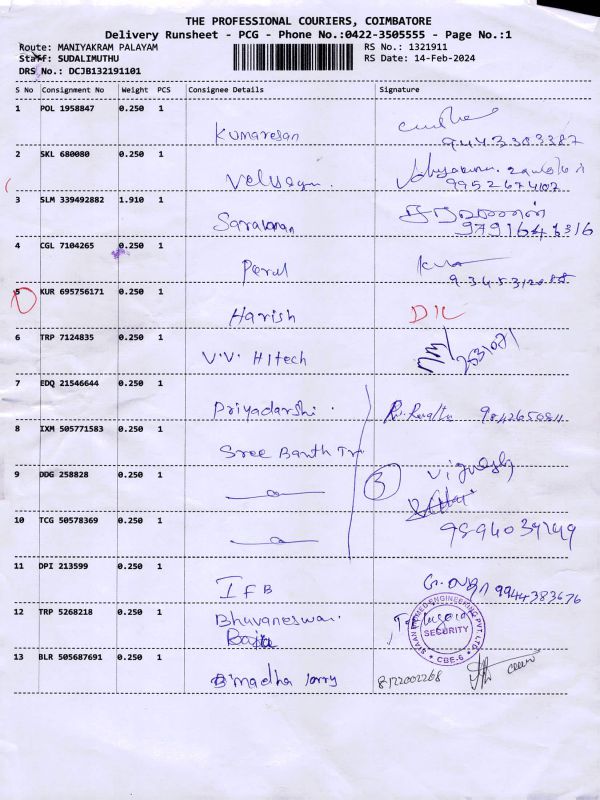 THE PROFESSIONAL COURIERS, COIMBATORE
Delivery Runsheet - PCG - Phone No.:0422-3505555 - Page No.:1
Route: MANIYAKRAM PALAYAM RS No.: 1321911
Staff: SUDALIMUTHU RS Date: 14-Feb-2024
DRS No.: DCJB132191101
S No Consignment No Weight PCS Consignee Details Signature
1 POL 1958847 0.250 1
Kumaresan
9443303387
2 SKL 680080 0.250 1
9952674107
3 SLM 339492882 1.910 1
Saravanan சரவணன்
4 CGL 7104265 0.250 1
Perul
5 KUR 695756171 0.250 1
Harish D/L
6 TRP 7124835 0.250 1
V.V. Hitech
7 EDQ 21546644 0.250 1
Priyadarshi. 9842650811
8 IXM 505771583 0.250 1
Sree Banth Tra
Vignesh
9 DDG 258828 0.250 1
3
10 TCG 50578369 0.250 1
11 DPI 213599 0.250 1
IFB 9944383676
12 TRP 5268218 0.250 1
Bhuvaneswari.
Baja
SECURITY
CBE-6
13 BLR 505687691 0.250 1
Bimadha lorry 8122002268